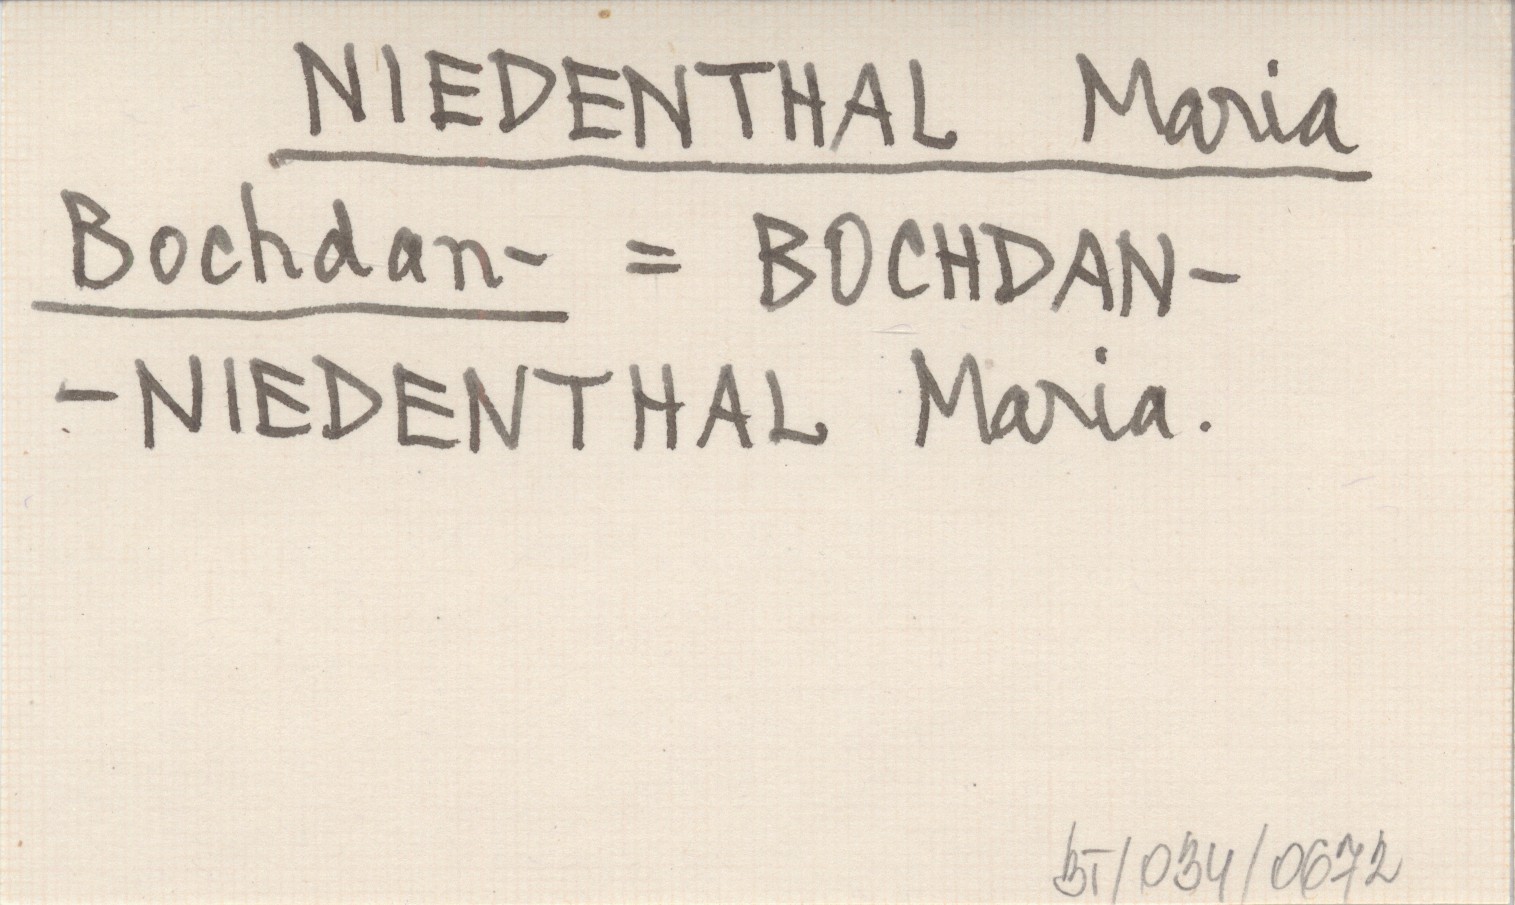 NIEDENTHAL Maria
Bochdan- = BOCHDAN-
-NIEDENTHAL Maria.
BT/034/0672